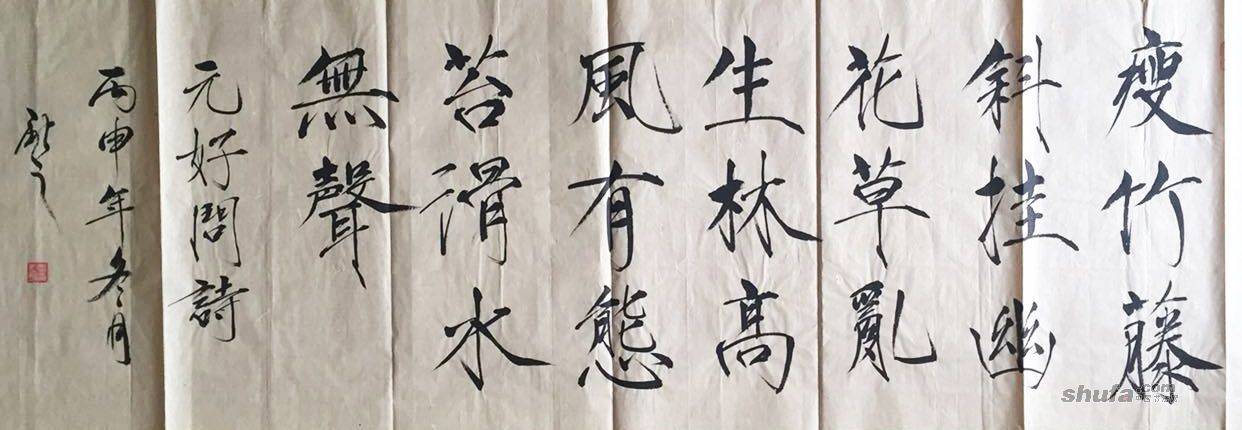 瘦竹藤
斜挂幽
花草亂
生林高
風有態
苔滑水
無聲
元好問詩
丙申年冬月
shufa.com